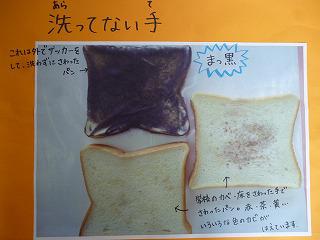 あら て
洗ってない手
これは外でサッカーを
して、洗わずにさわった
パン
まっ黒
学校のカベ・床をさわった手で
さわったパン。灰・茶・黄…
いろいろな色のカビが
はえています。